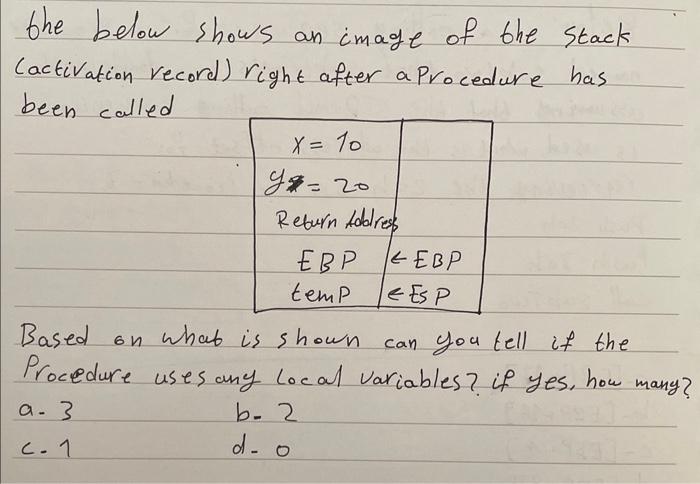 the below shows an image of the stack
(activation record) right after a Procedure has
been called
x = 10
y = 20
Return Address
EBP ← EBP
temp ← ESP
Based on what is shown can you tell if the
Procedure uses any local variables? if yes, how many?
a- 3 b- 2
c- 1 d- 0